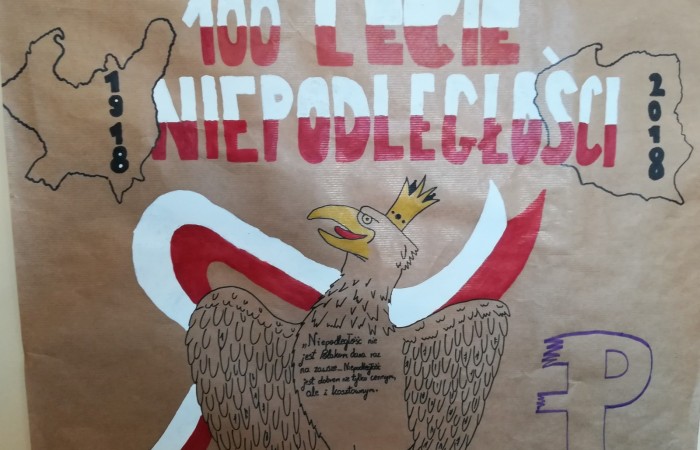 100 LECIE
NIEPODLEGŁOŚCI
1918
2018
„Niepodległość nie
jest Polakom dana raz
na zawsze... Niepodległość
jest dobrem nie tylko cennym,
ale i kosztownym."
P